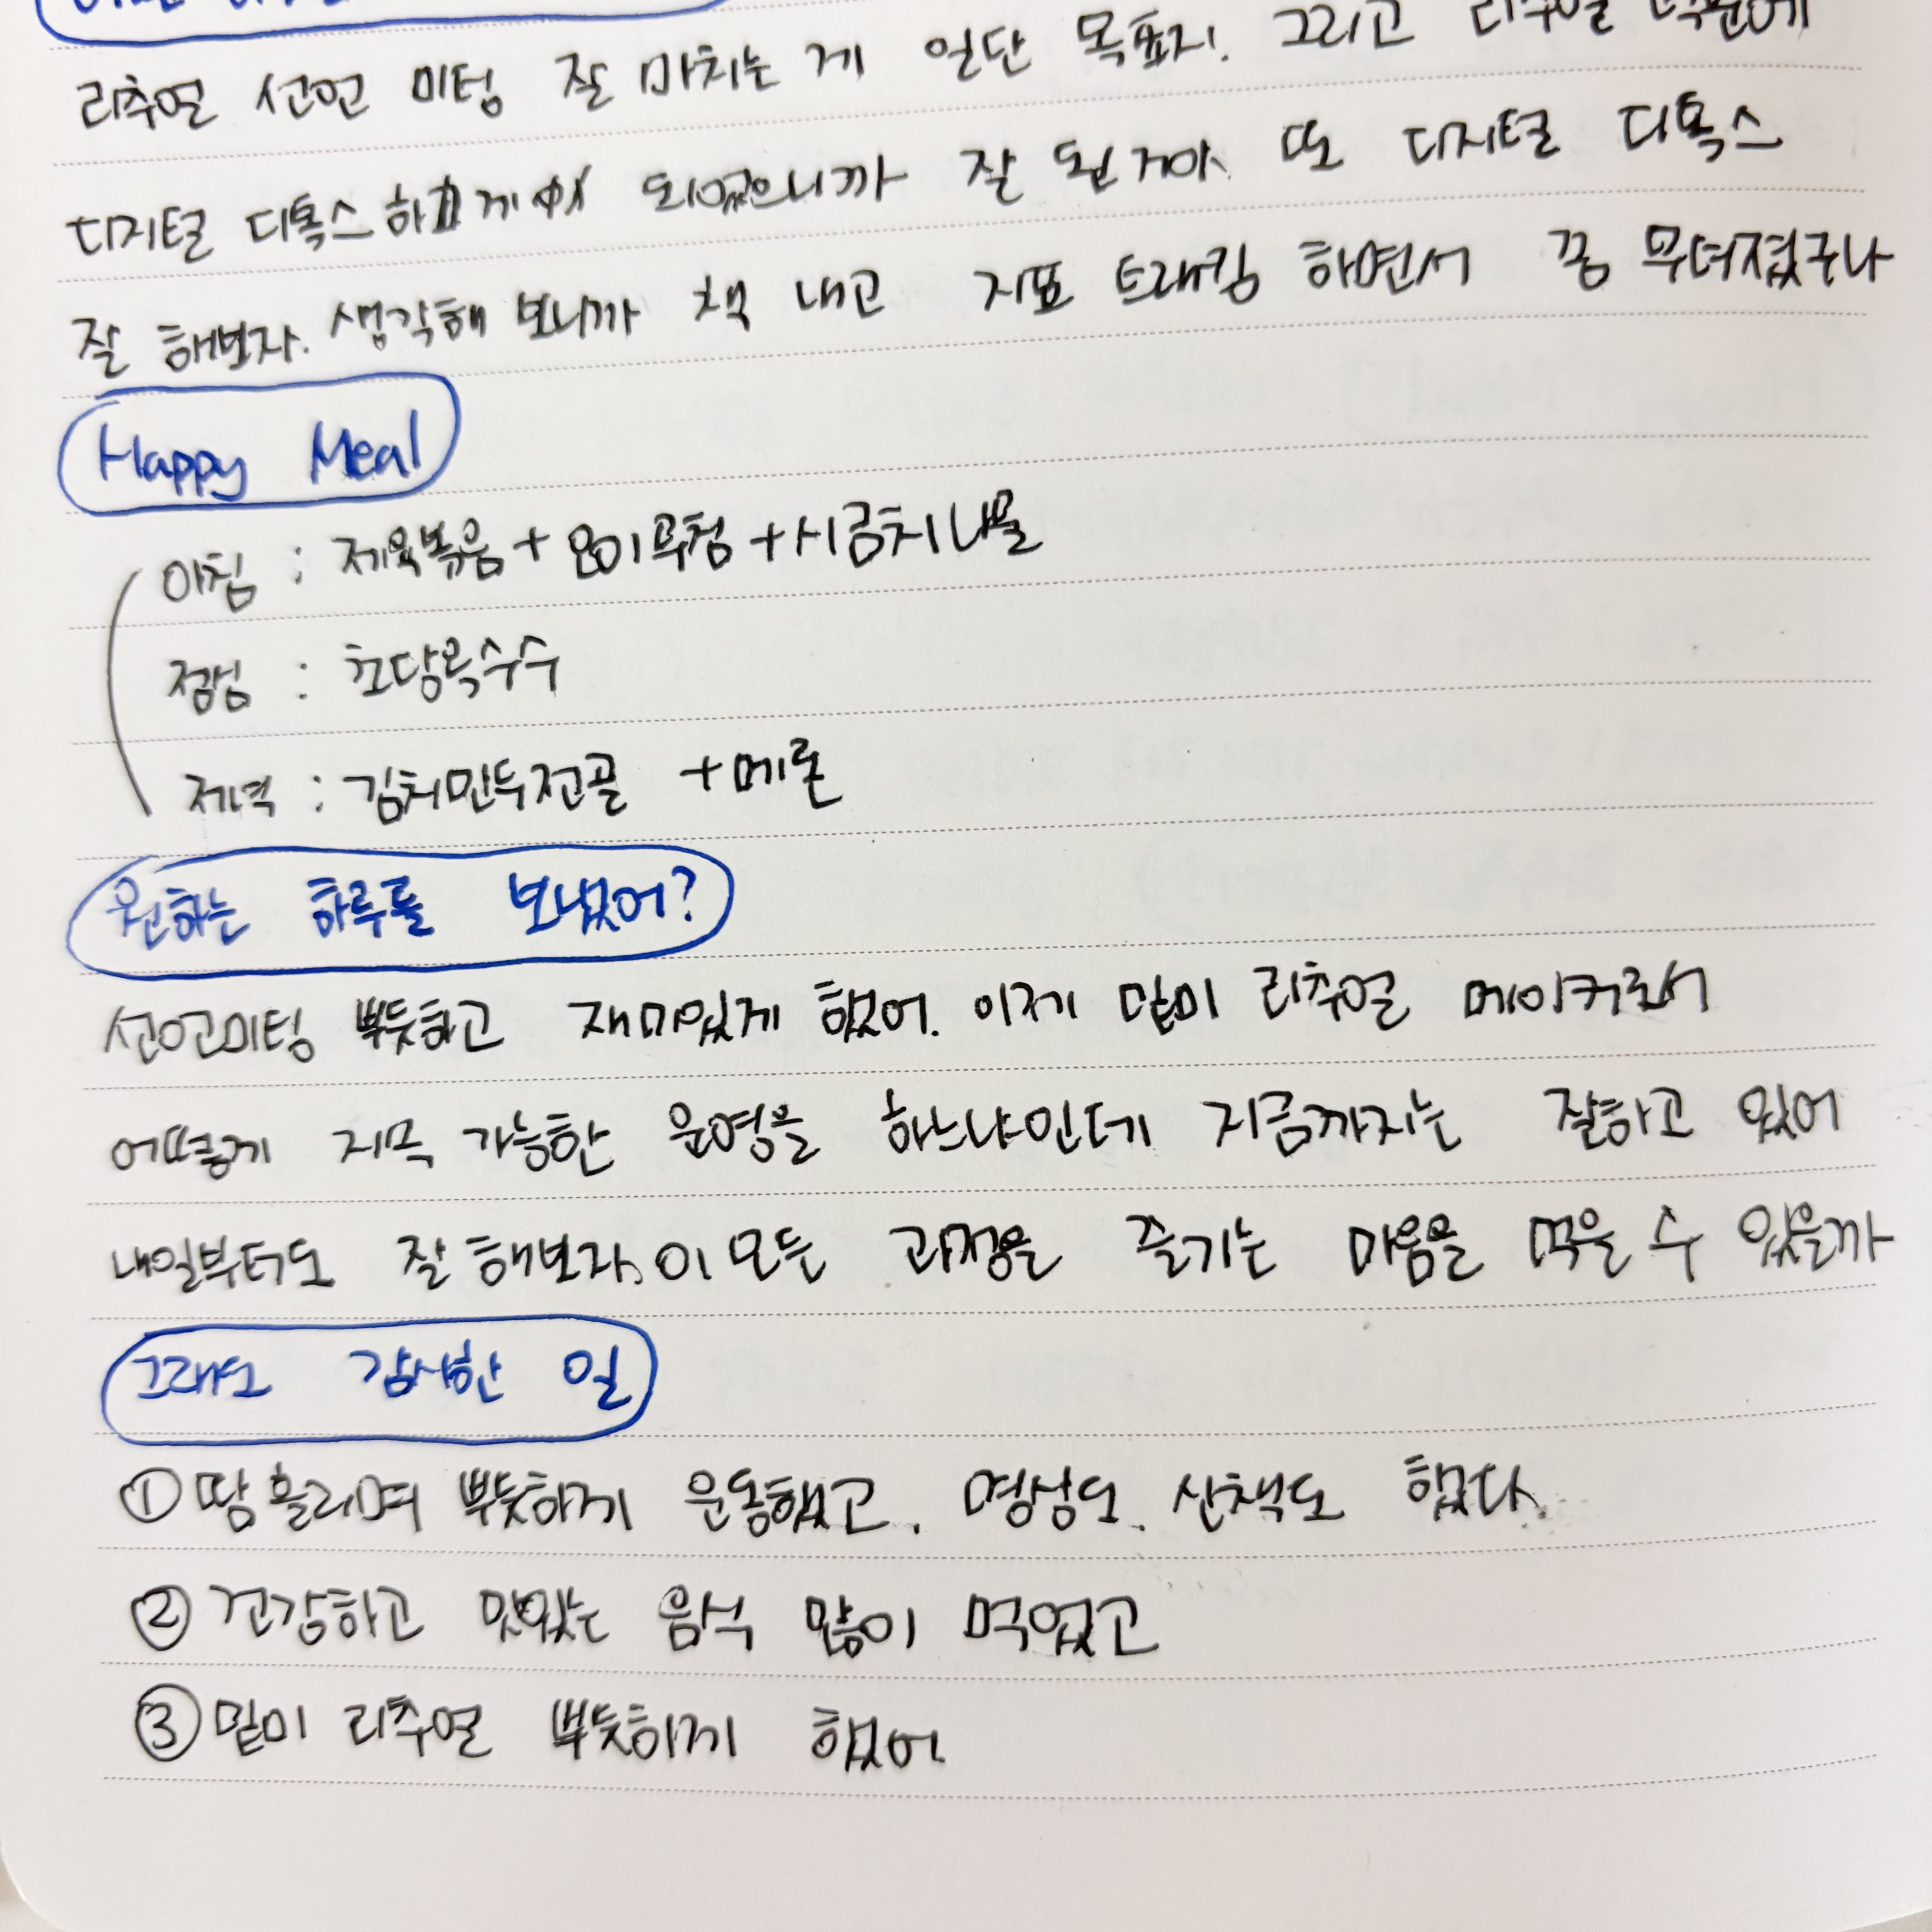 리추얼 선언 미팅 잘 마치는 게 일단 목표지. 그리고 리추얼 덕분에
디지털 디톡스 하게 되었으니까 잘 된거야. 또 디지털 디톡스
잘 해보자. 생각해 보니까 책 내고 지표 트래킹 하면서 꽁 무뎌졌구나
Happy Meal
아침 : 제육볶음 + 오이무침 + 시금치나물
점심 : 초당옥수수
저녁 : 김치만두전골 + 메론
원하는 하루를 보냈어?
선언미팅 뿌듯하고 재미있게 했어. 이제 밑미 리추얼 메이커로서
어떻게 지속 가능한 운영을 하느냐인데 지금까지는 잘하고 있어
내일부터도 잘 해보자. 이 모든 과정을 즐기는 마음을 먹을 수 있을까
그래도 감사한 일
① 땀 흘리며 뿌듯하게 운동했고, 명상도, 산책도 했다.
② 건강하고 맛있는 음식 많이 먹었고
③ 밑미 리추얼 뿌듯하게 했어